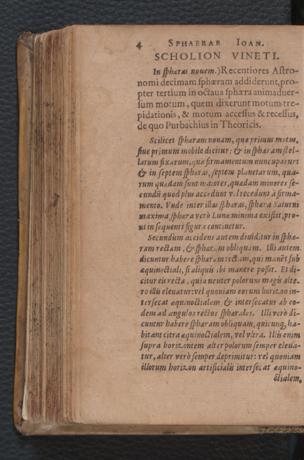 4 SPHAERAE IOAN.
SCHOLION VINETI.
In sphæras nouem.) Recentiores Astro-
nomi decimam sphæram addiderunt, pro-
pter tertium in octaua sphæra animaduer-
sum motum, quem dixerunt motum tre-
pidationis, & motum accessus & recessus,
de quo Purbachius in Theoricis.
Scilicet sphæram nonam, quæ primus motus,
siue primum mobile dicitur: & in sphæram stel-
larum fixarum, quæ firmamentum nuncupatur:
& in septem sphæras, septem planetarum, qua-
rum quædam sunt maiores, quædam minores se-
cundū quod plus accedunt vel recedunt à firma-
mento. Vnde inter illas sphæras, sphæra Saturni
maxima, sphæra verò Lunæ minima existit, pro-
ut in sequenti figura continetur.
Secundum accidens autem diuiditur in sphæ-
ram rectam, & sphæram obliquam. Illi autem
dicuntur habere sphæram rectam, qui manēt sub
æquinoctiali, si aliquis ibi manere possit. Et di-
citur eis recta, quia neuter polorum magis alte-
ro illis eleuatur: vel quoniam eorum horizon in-
tersecat æquinoctialem, & intersecatur ab eo-
dem ad angulos rectos sphærales. Illi verò di-
cuntur habere sphæram obliquam, quicunq; ha-
bitant citra æquinoctialem, vel vltra. Illis enim
supra horizontem alter polorum semper eleua-
tur, alter verò semper deprimitur: vel quoniam
illorum horizon artificialis intersecat æquino-
ctialem,